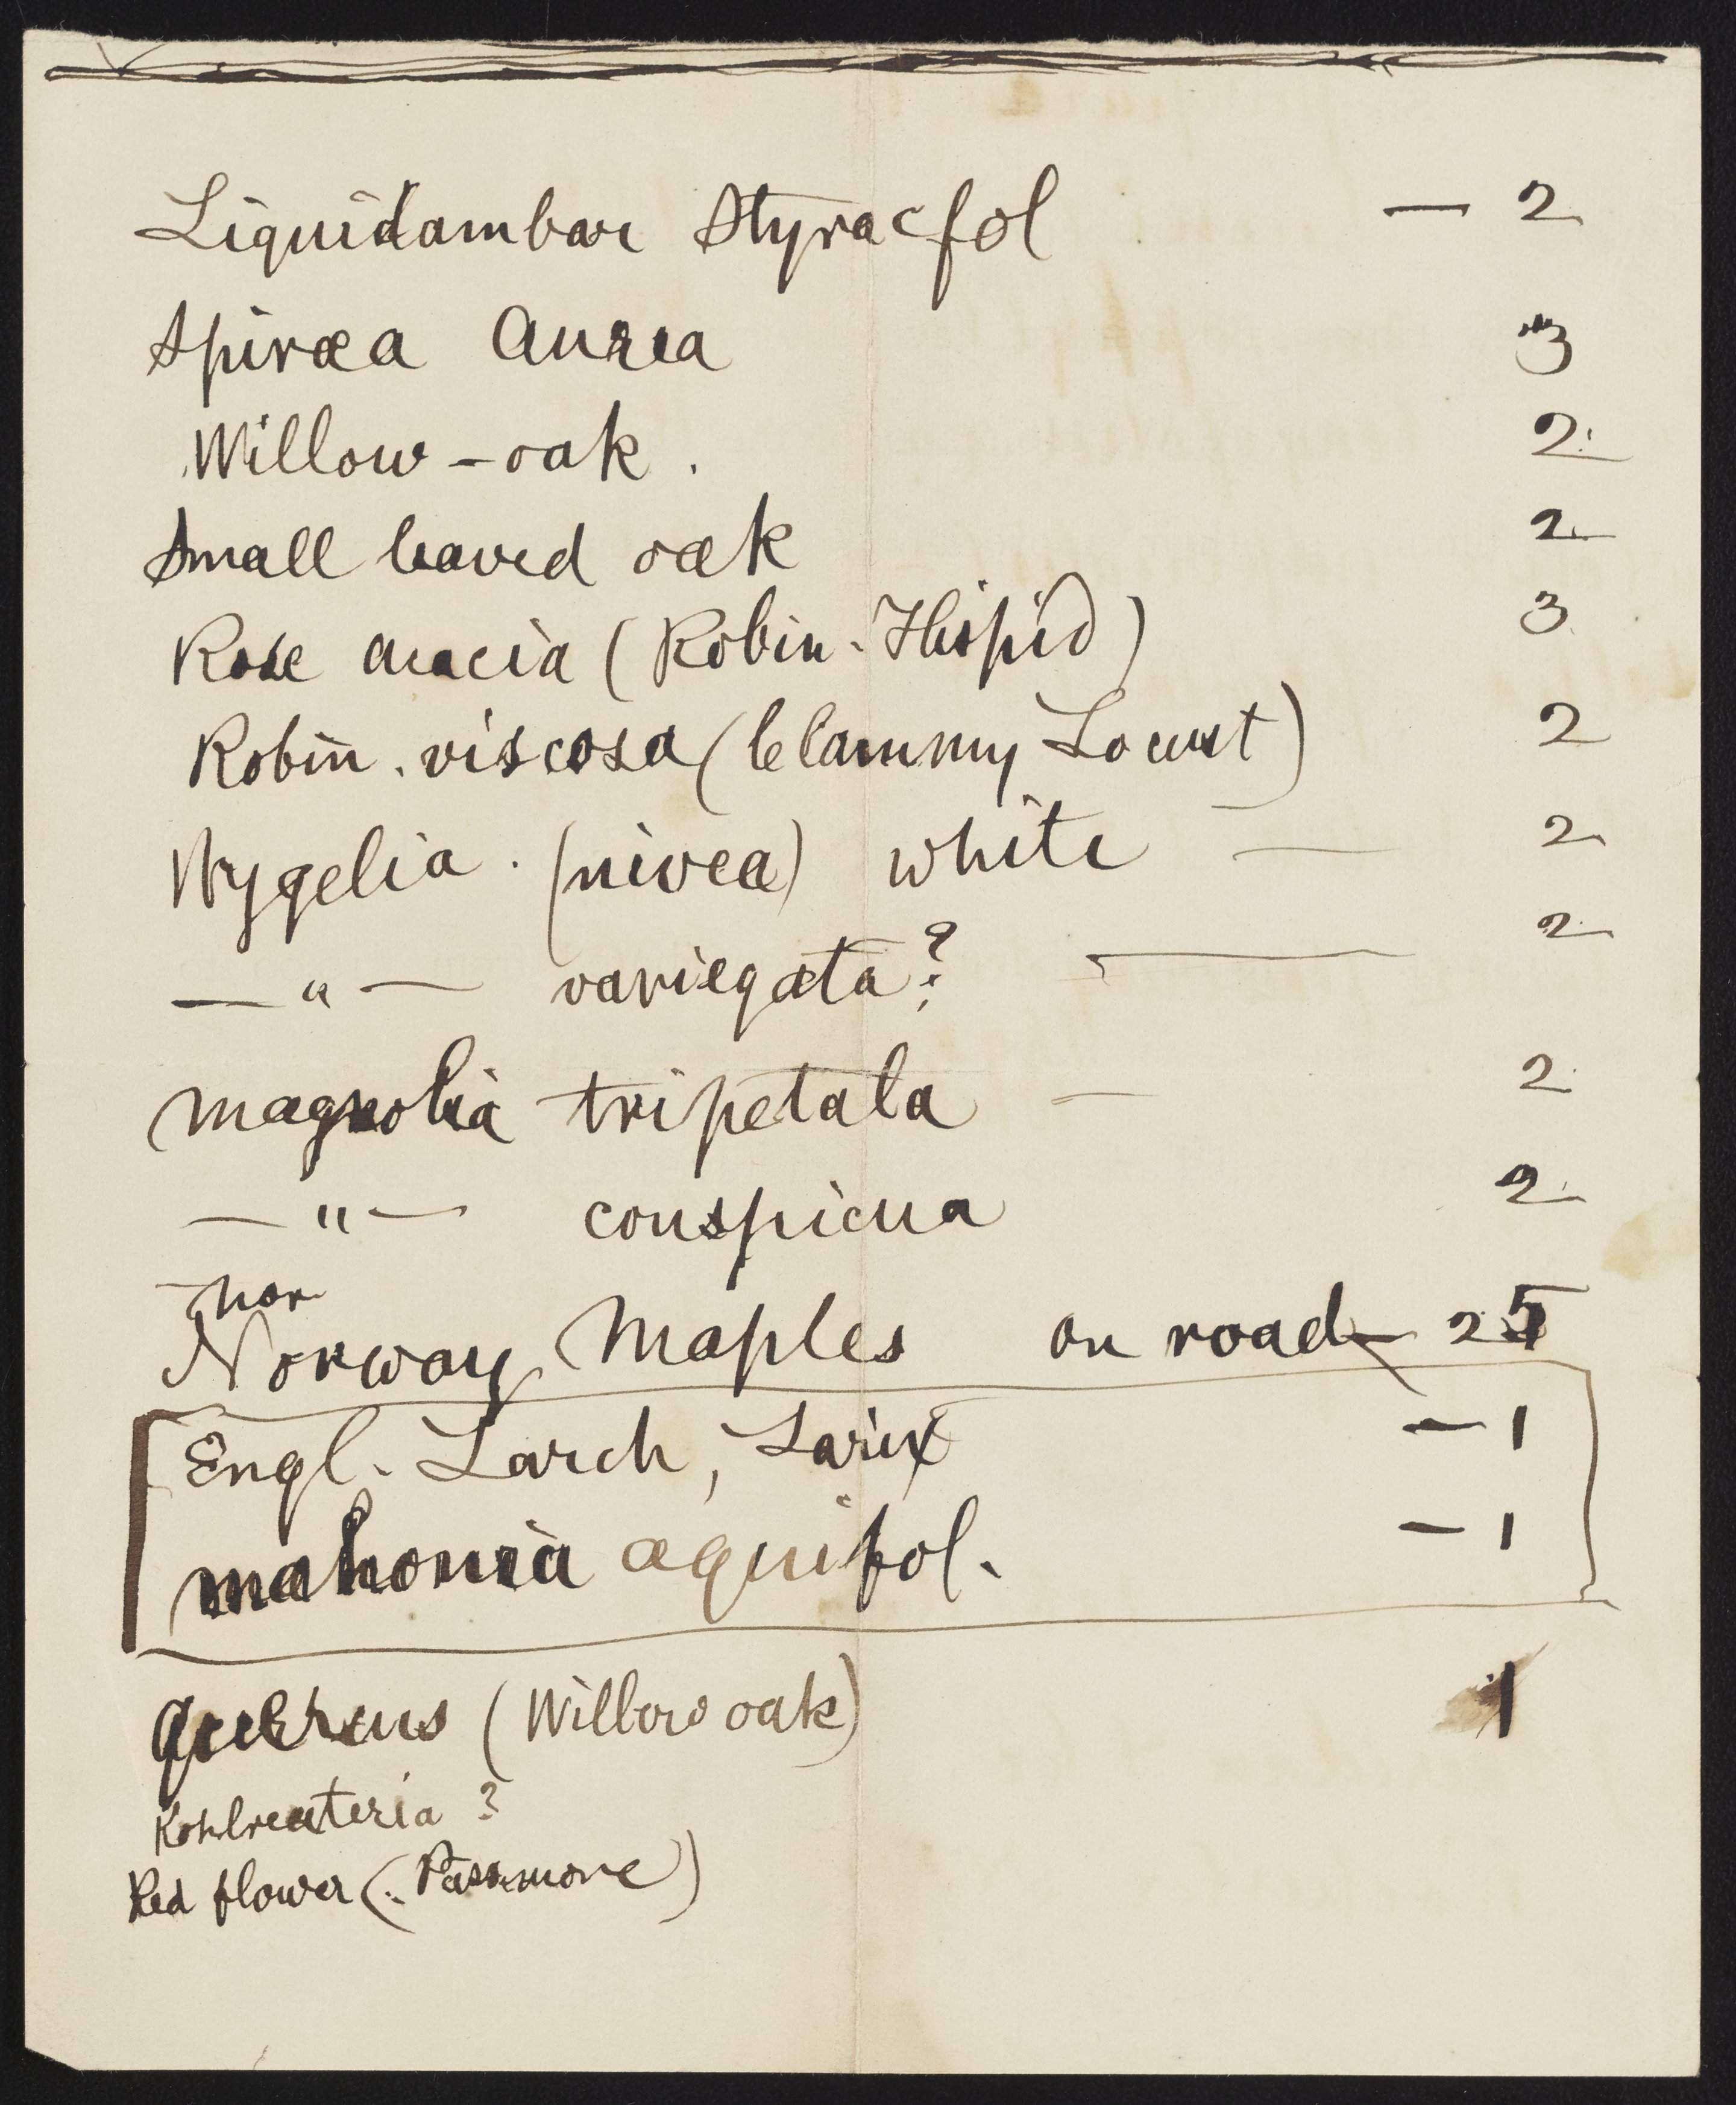 Liquidambar Styracfol — 2
Spiræa Aurea 3
Willow-oak. 2
Small leaved oak 2
Rose acacia (Robin. Hispid) 3
Robin. viscosa (Clammy Locust) 2
Wygelia. (nivea) white — 2
— " — variegata? — 2
Magnolia tripetala — 2
— " — conspicua 2
Nor
Norway Maples on road — 25
Engl. Larch, Larix — 1
Mahonia aquifol. — 1
Quercus (Willow oak) 1
Kohlreuteria ?
Red flower (. Passmore)